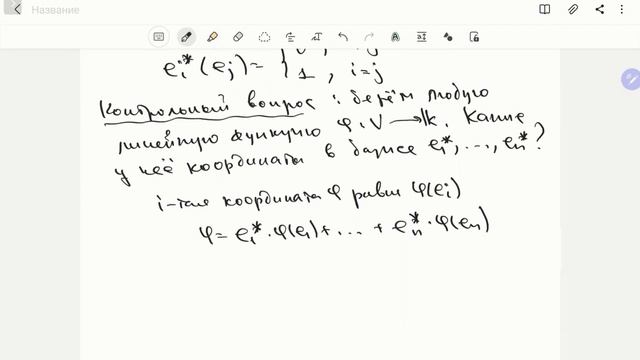 Название
e_i^*(e_j) = { 0, i≠j
1, i=j
Контрольный вопрос: берём любую
линейную функцию φ: V → k. Какие
у неё координаты в базисе e_1^*, ..., e_n^*?
i-тая координата φ равна φ(e_i)
φ = e_1^* · φ(e_1) + ... + e_n^* · φ(e_n)